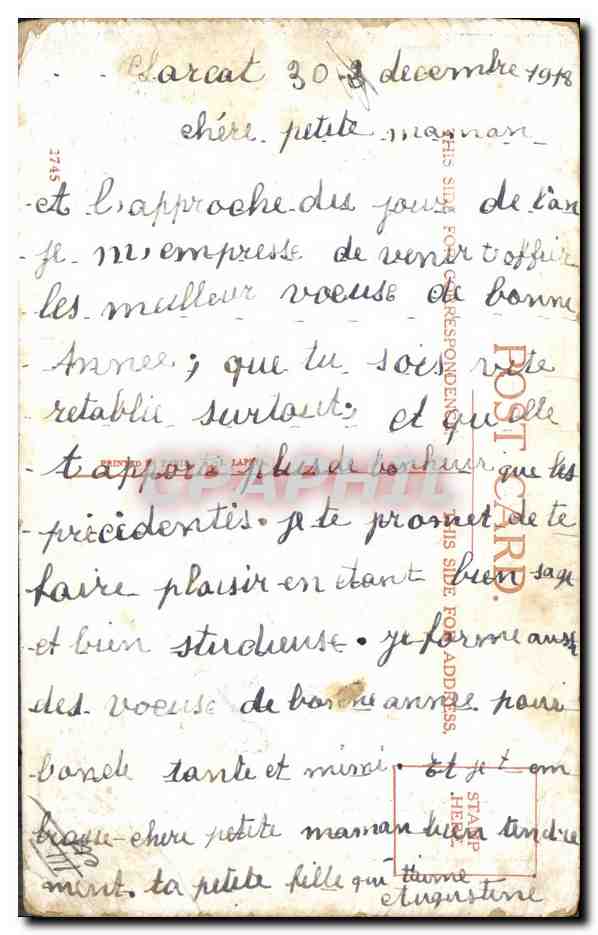 Sarcat 30 decembre 1918
chére petite maman
A l'approche des jour de l'an
je m'empresse de venir t offrir
les meilleur voeuse de bonne
Année; que tu sois vite
retablie surtout; et qu elle
t apporte plus de bonheur que les
précédentes. je te promet de te
faire plaisir en étant bien sage
et bien studieuse. je forme aussi
des voeuse de bonne année pour
toncle tante et mimi. Et je t em
brasse chere petite maman bien tendre
ment. ta petite fille qui t'aime
Augustine
POST CARD.
THIS SIDE FOR CORRESPONDENCE.
THIS SIDE FOR ADDRESS.
STAMP
HERE.
1745
PRINTED
CPAPHIL